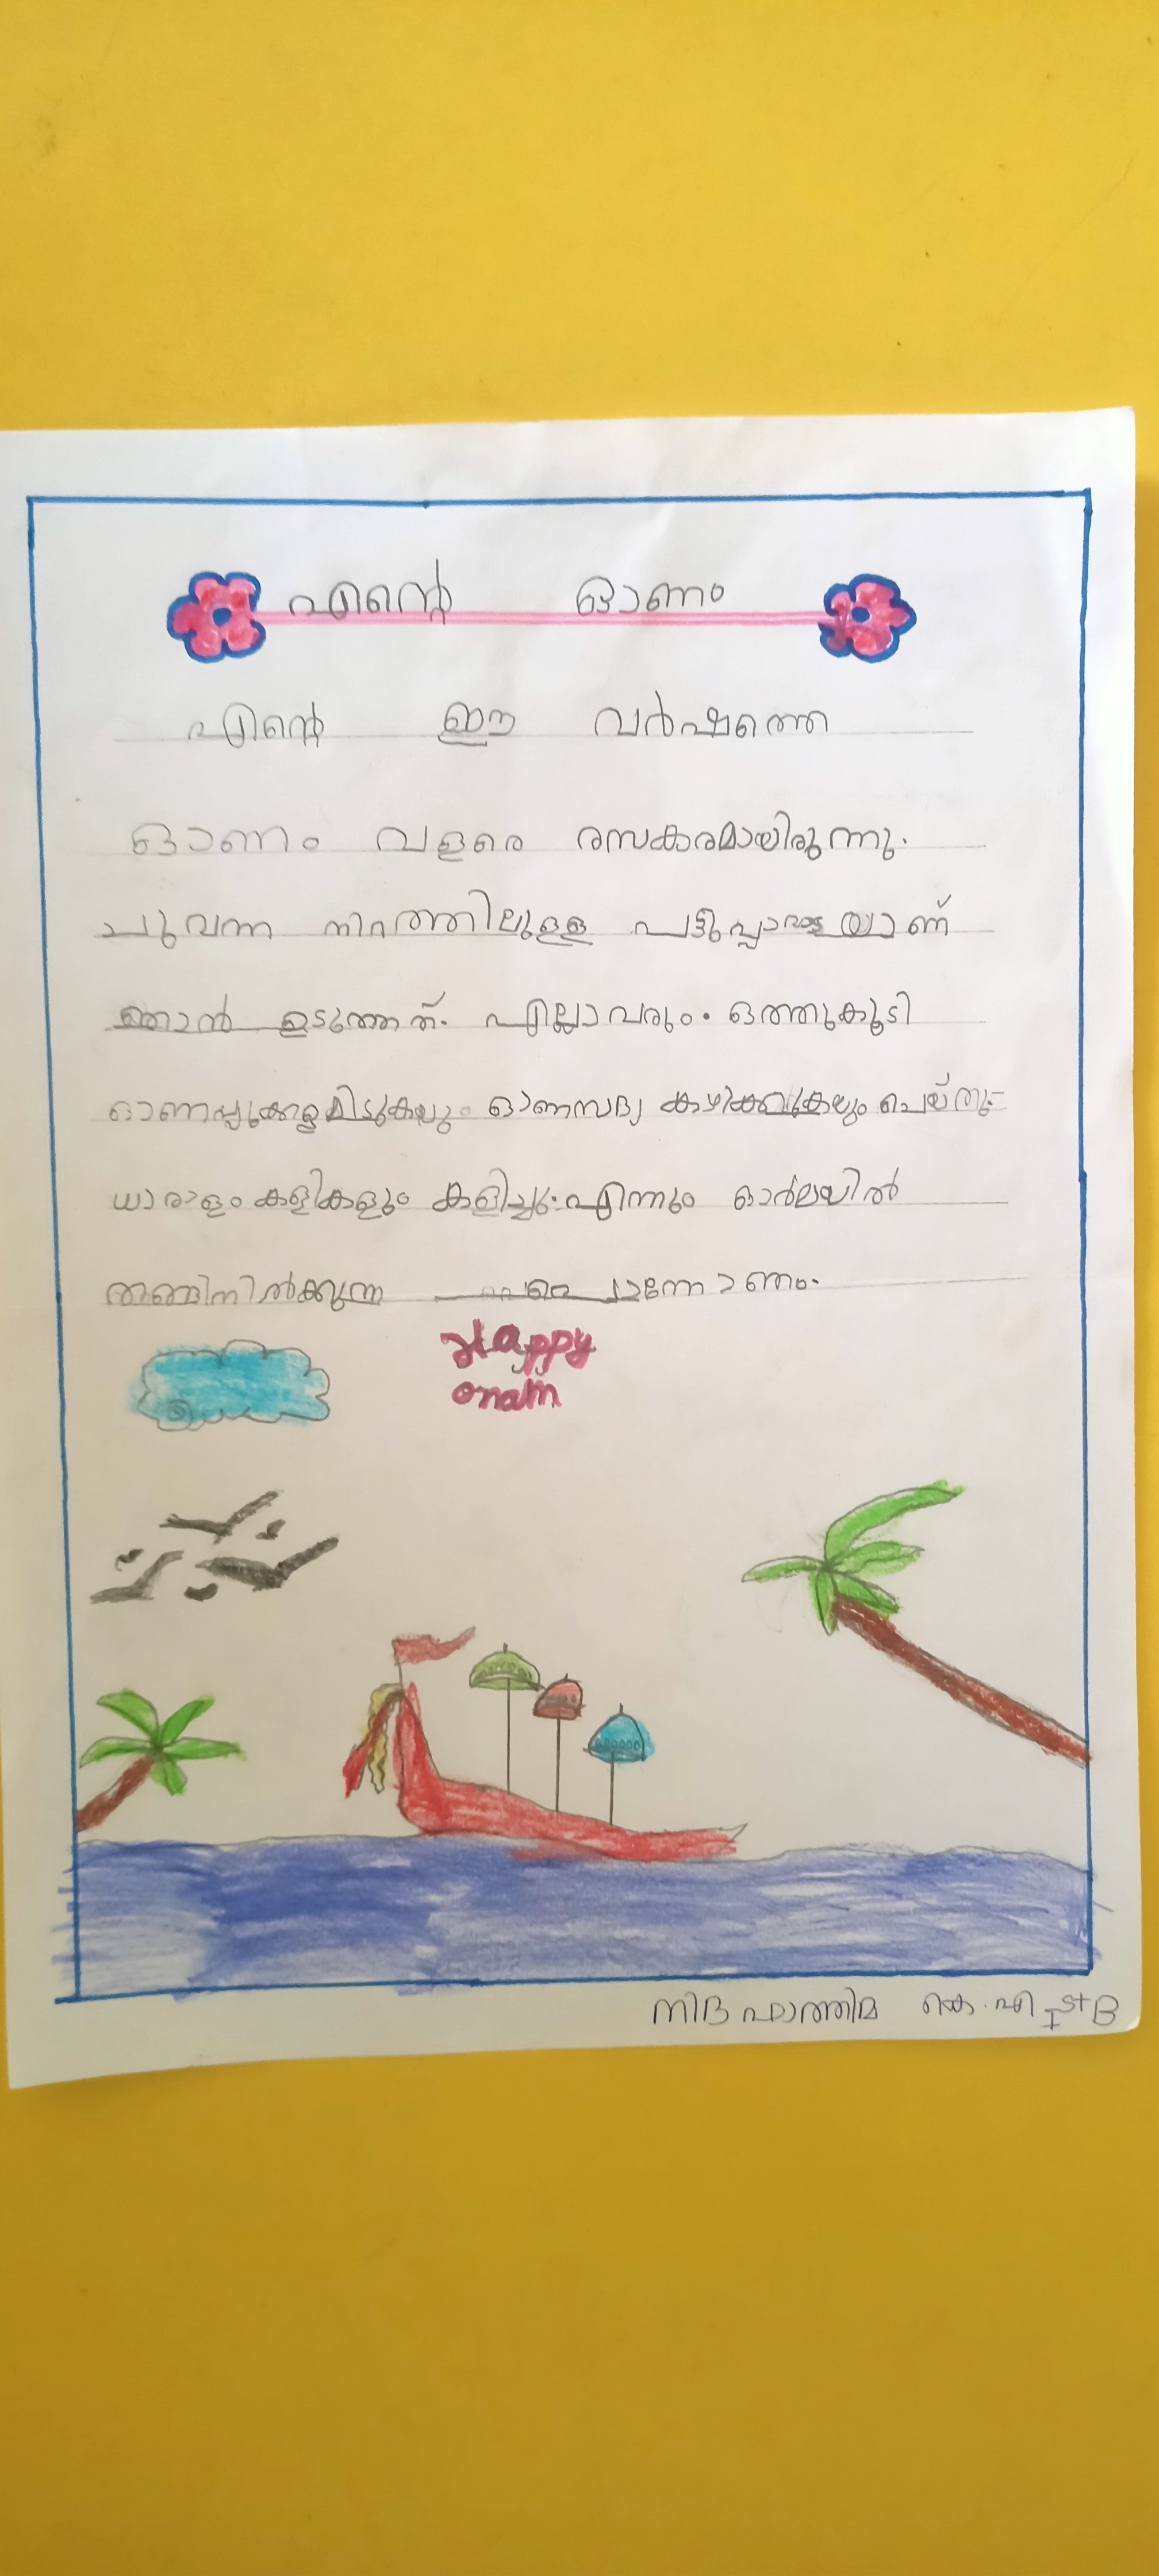 എന്റെ ഓണം
എന്റെ ഈ വർഷത്തെ
ഓണം വളരെ രസകരമായിരുന്നു.
ചുവന്ന നിറത്തിലുള്ള പട്ടുപ്പാവാടയാണ്
ഞാൻ ഉടുത്തത്. എല്ലാവരും. ഒത്തുകൂടി
ഓണപ്പൂക്കളമിടുകയും ഓണസദ്യ കഴിക്കുകയും ചെയ്തു.
ധാരാളം കളികളും കളിച്ചു. എന്നും ഓർമയിൽ
തങ്ങിനിൽക്കുന്ന പൊന്നോണം.
Happy
onam
നിദ ഫാത്തിമ കെ.എ I st B